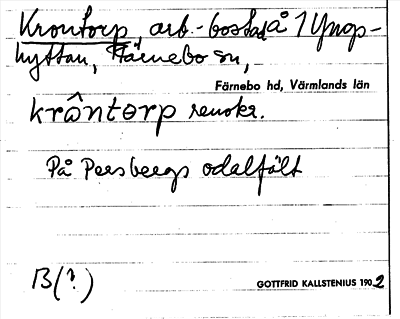 Krontorp, arb.-bostad å 1 Yngs-
hyttan, Färnebo sn,
Färnebo hd, Värmlands län
krôntorp renskr.
På Persbergs odalfält
B(?)
GOTTFRID KALLSTENIUS 1902